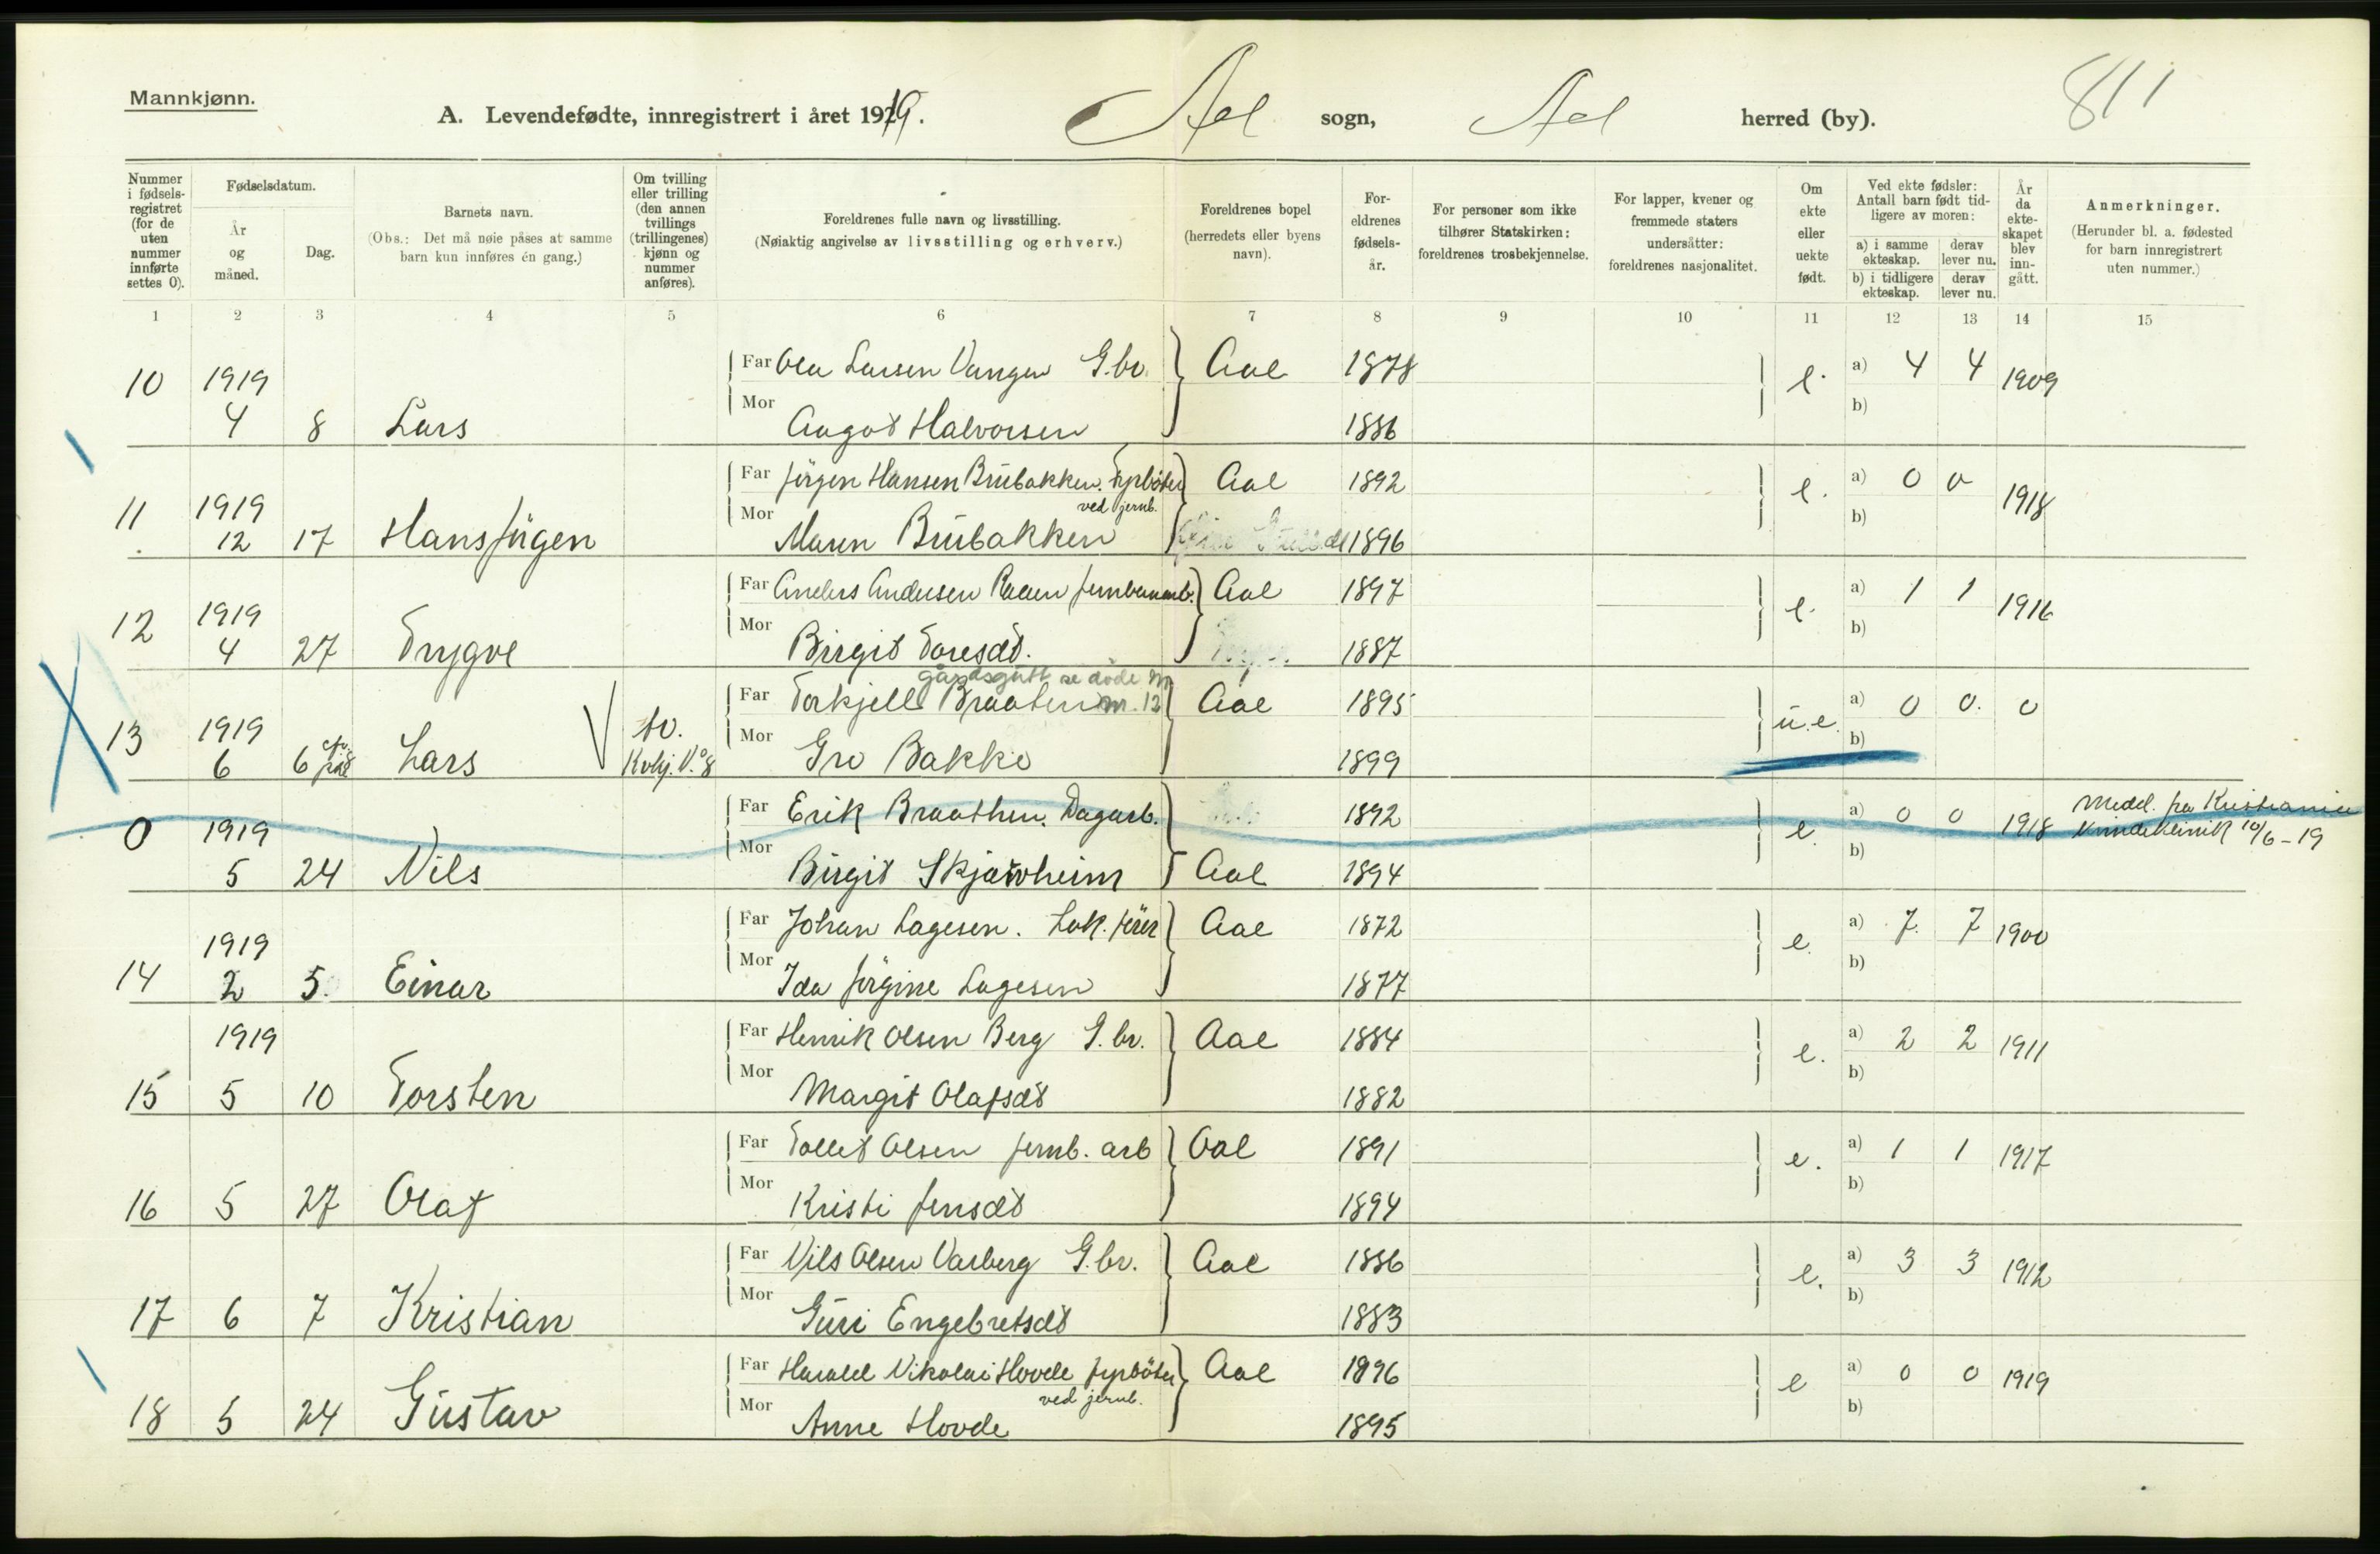 Mannkjønn.
A. Levendefødte, innregistrert i året 1919. Ael sogn, Ael herred (by). 811
Nummer i fødsels-registret (for de uten nummer innførte settes 0).
Fødselsdatum.
År og måned.
Dag.
Barnets navn.
(Obs.: Det må nøie påses at samme barn kun innføres én gang.)
Om tvilling eller trilling (den annen tvillings (trillingenes) kjønn og nummer anføres).
Foreldrenes fulle navn og livsstilling.
(Nøiaktig angivelse av livsstilling og erhverv.)
Foreldrenes bopel (herredets eller byens navn).
For-eldrenes fødsels-år.
For personer som ikke tilhører Statskirken: foreldrenes trosbekjennelse.
For lapper, kvener og fremmede staters undersåtter: foreldrenes nasjonalitet.
Om ekte eller uekte født.
Ved ekte fødsler: Antall barn født tid-ligere av moren:
a) i samme ekteskap.
derav lever nu.
b) i tidligere ekteskap.
derav lever nu.
År da ekte-skapet blev inn-gått.
Anmerkninger.
(Herunder bl. a. fødested for barn innregistrert uten nummer.)
1 2 3 4 5 6 7 8 9 10 11 12 13 14 15
10 1919 Far Ola Larsen Vangen G.br. Aal 1878 e. a) 4 4 1909
4 8 Lars Mor Aagot Halvorsen 1886 b)
11 1919 Far Jörgen Hansen Brubakken. Fyrböter ved jernb. Aal 1892 e. a) 0 0 1918
12 17 Hans Jürgen Mor Maren Brubakken 1896 b)
12 1919 Far Anders Andersen Raaen jernbanearb. Aal 1897 e. a) 1 1 1916
4 27 Trygve Mor Birgit Toresdt. 1887 b)
gårdsgutt se döde M
13 1919 tv. Far Torkjell Braaten m. 12 Aal 1895 u.e. a) 0 0. 0
6 6 Lars Kvkj. No 8 Mor Gro Bakke 1899 b)
0 1919 Far Erik Braathen. Dagarb. 1892 e. a) 0 0 1918 Medd. fra Kristiania
5 24 Nils Mor Birgit Skjarvheim Aal 1894 b) Kvindeklinik 10/6-19
14 1919 Far Johan Lagesen. Lok. förer Aal 1872 e. a) 7. 7 1900
2 5. Einar Mor Ida Jörgine Lagesen 1877 b)
15 1919 Far Henrik Olsen Berg G.br. Aal 1884 e. a) 2 2 1911
5 10 Torsten Mor Margit Olafsdt 1882 b)
16 Far Tollef Olsen jernb. arb Aal 1891 e. a) 1 1 1917
5 27 Olaf Mor Kristi Jensdt 1894 b)
17 Far Nils Olsen Varberg G.br. Aal 1886 e. a) 3 3 1912
6 7 Kristian Mor Guri Engebretsdt 1883 b)
18 Far Harald Nikolai Hovde fyrböter ved jernb. Aal 1896 e a) 0 0 1919
5 24 Gustav Mor Anne Hovde 1895 b)